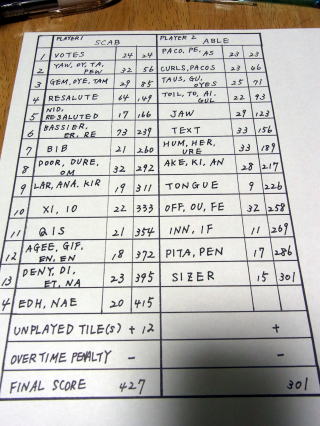 PLAYER 1 SCAB PLAYER 2 ABLE
1 VOTES 24 24 PACO, PE, AS 23 23
2 YAW, OY, TA, PEW 32 56 CURLS, PACOS 23 46
3 GEM, OYE, TAM 29 85 TAUS, GU, OYES 25 71
4 RESALUTE 64 149 TOIL, TO, AI, GUL 22 93
5 NID, RESALUTED 17 166 JAW 29 123
6 BASSIER, ER, RE 73 239 TEXT 33 156
7 BIB 21 260 HUM, HER, URE 33 189
8 DOOR, DURE, OM 32 292 AKE, KI, AN 28 217
9 LAR, ANA, KIR 19 311 TONGUE 9 226
10 XI, IO 22 333 OFF, OU, FE 32 258
11 QIS 21 354 INN, IF 11 269
12 AGEE, GIF, EN, EN 18 372 PITA, PEN 17 286
13 DENY, DI, ET, NA 23 395 SIZER 15 301
4 EDH, NAE 20 415
UNPLAYED TILE(S) + 12 +
OVERTIME PENALTY - -
FINAL SCORE 427 301